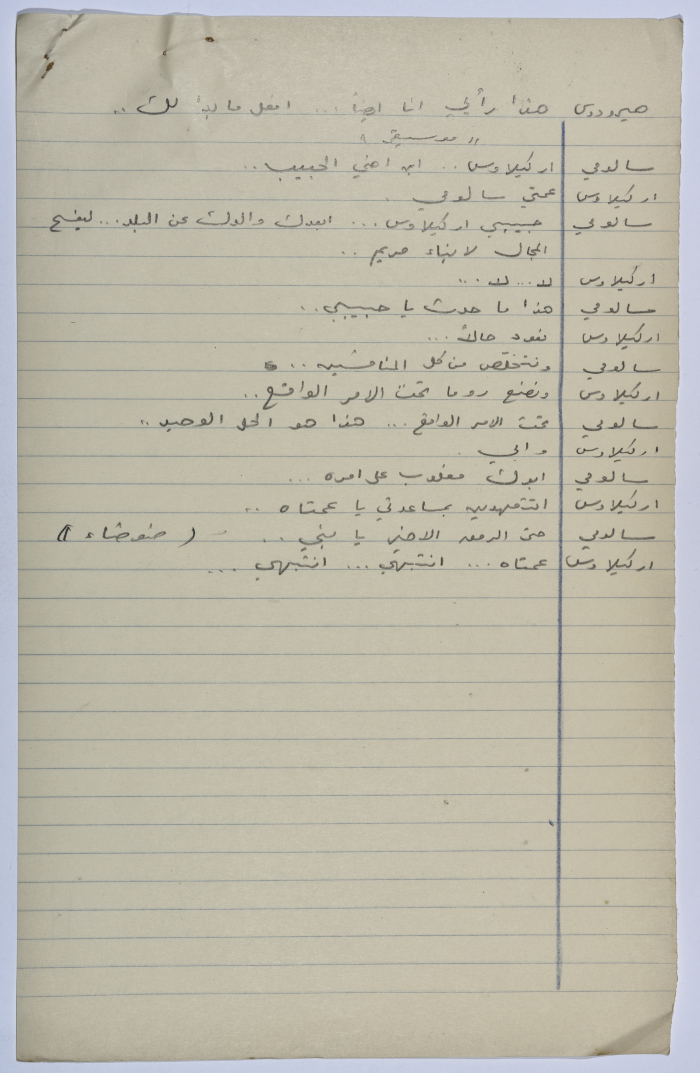 هيرودوس هذا رأيي انا ايضاً ... افعل ما بدا لك ..
" موسيقى "
سالومي اركيلاوس .. ابن اخي الحبيب ..
اركيلاوس عمتي سالومي .
سالومي حبيبي اركيلاوس ... ابعدك والدك عن البلد ... ليفسح
المجال لابناء مريم ..
اركيلاوس لا ... لا ...
سالومي هذا ما حدث يا حبيبي ..
اركيلاوس نعود حالاً ...
سالومي ونتخلص من كل المنافسين ...
اركيلاوس ونضع روما تحت الامر الواقع ..
سالومي تحت الامر الواقع ... هذا هو الحل الوحيد ..
اركيلاوس وابي .
سالومي ابوك مغلوب على امره ...
اركيلاوس اتتعهدين بمساعدتي يا عمتاه ..
سالومي حتى الرمق الاخير يا بني .. - ( ضوضاء )
اركيلاوس عمتاه ... انتبهي ... انتبهي ...